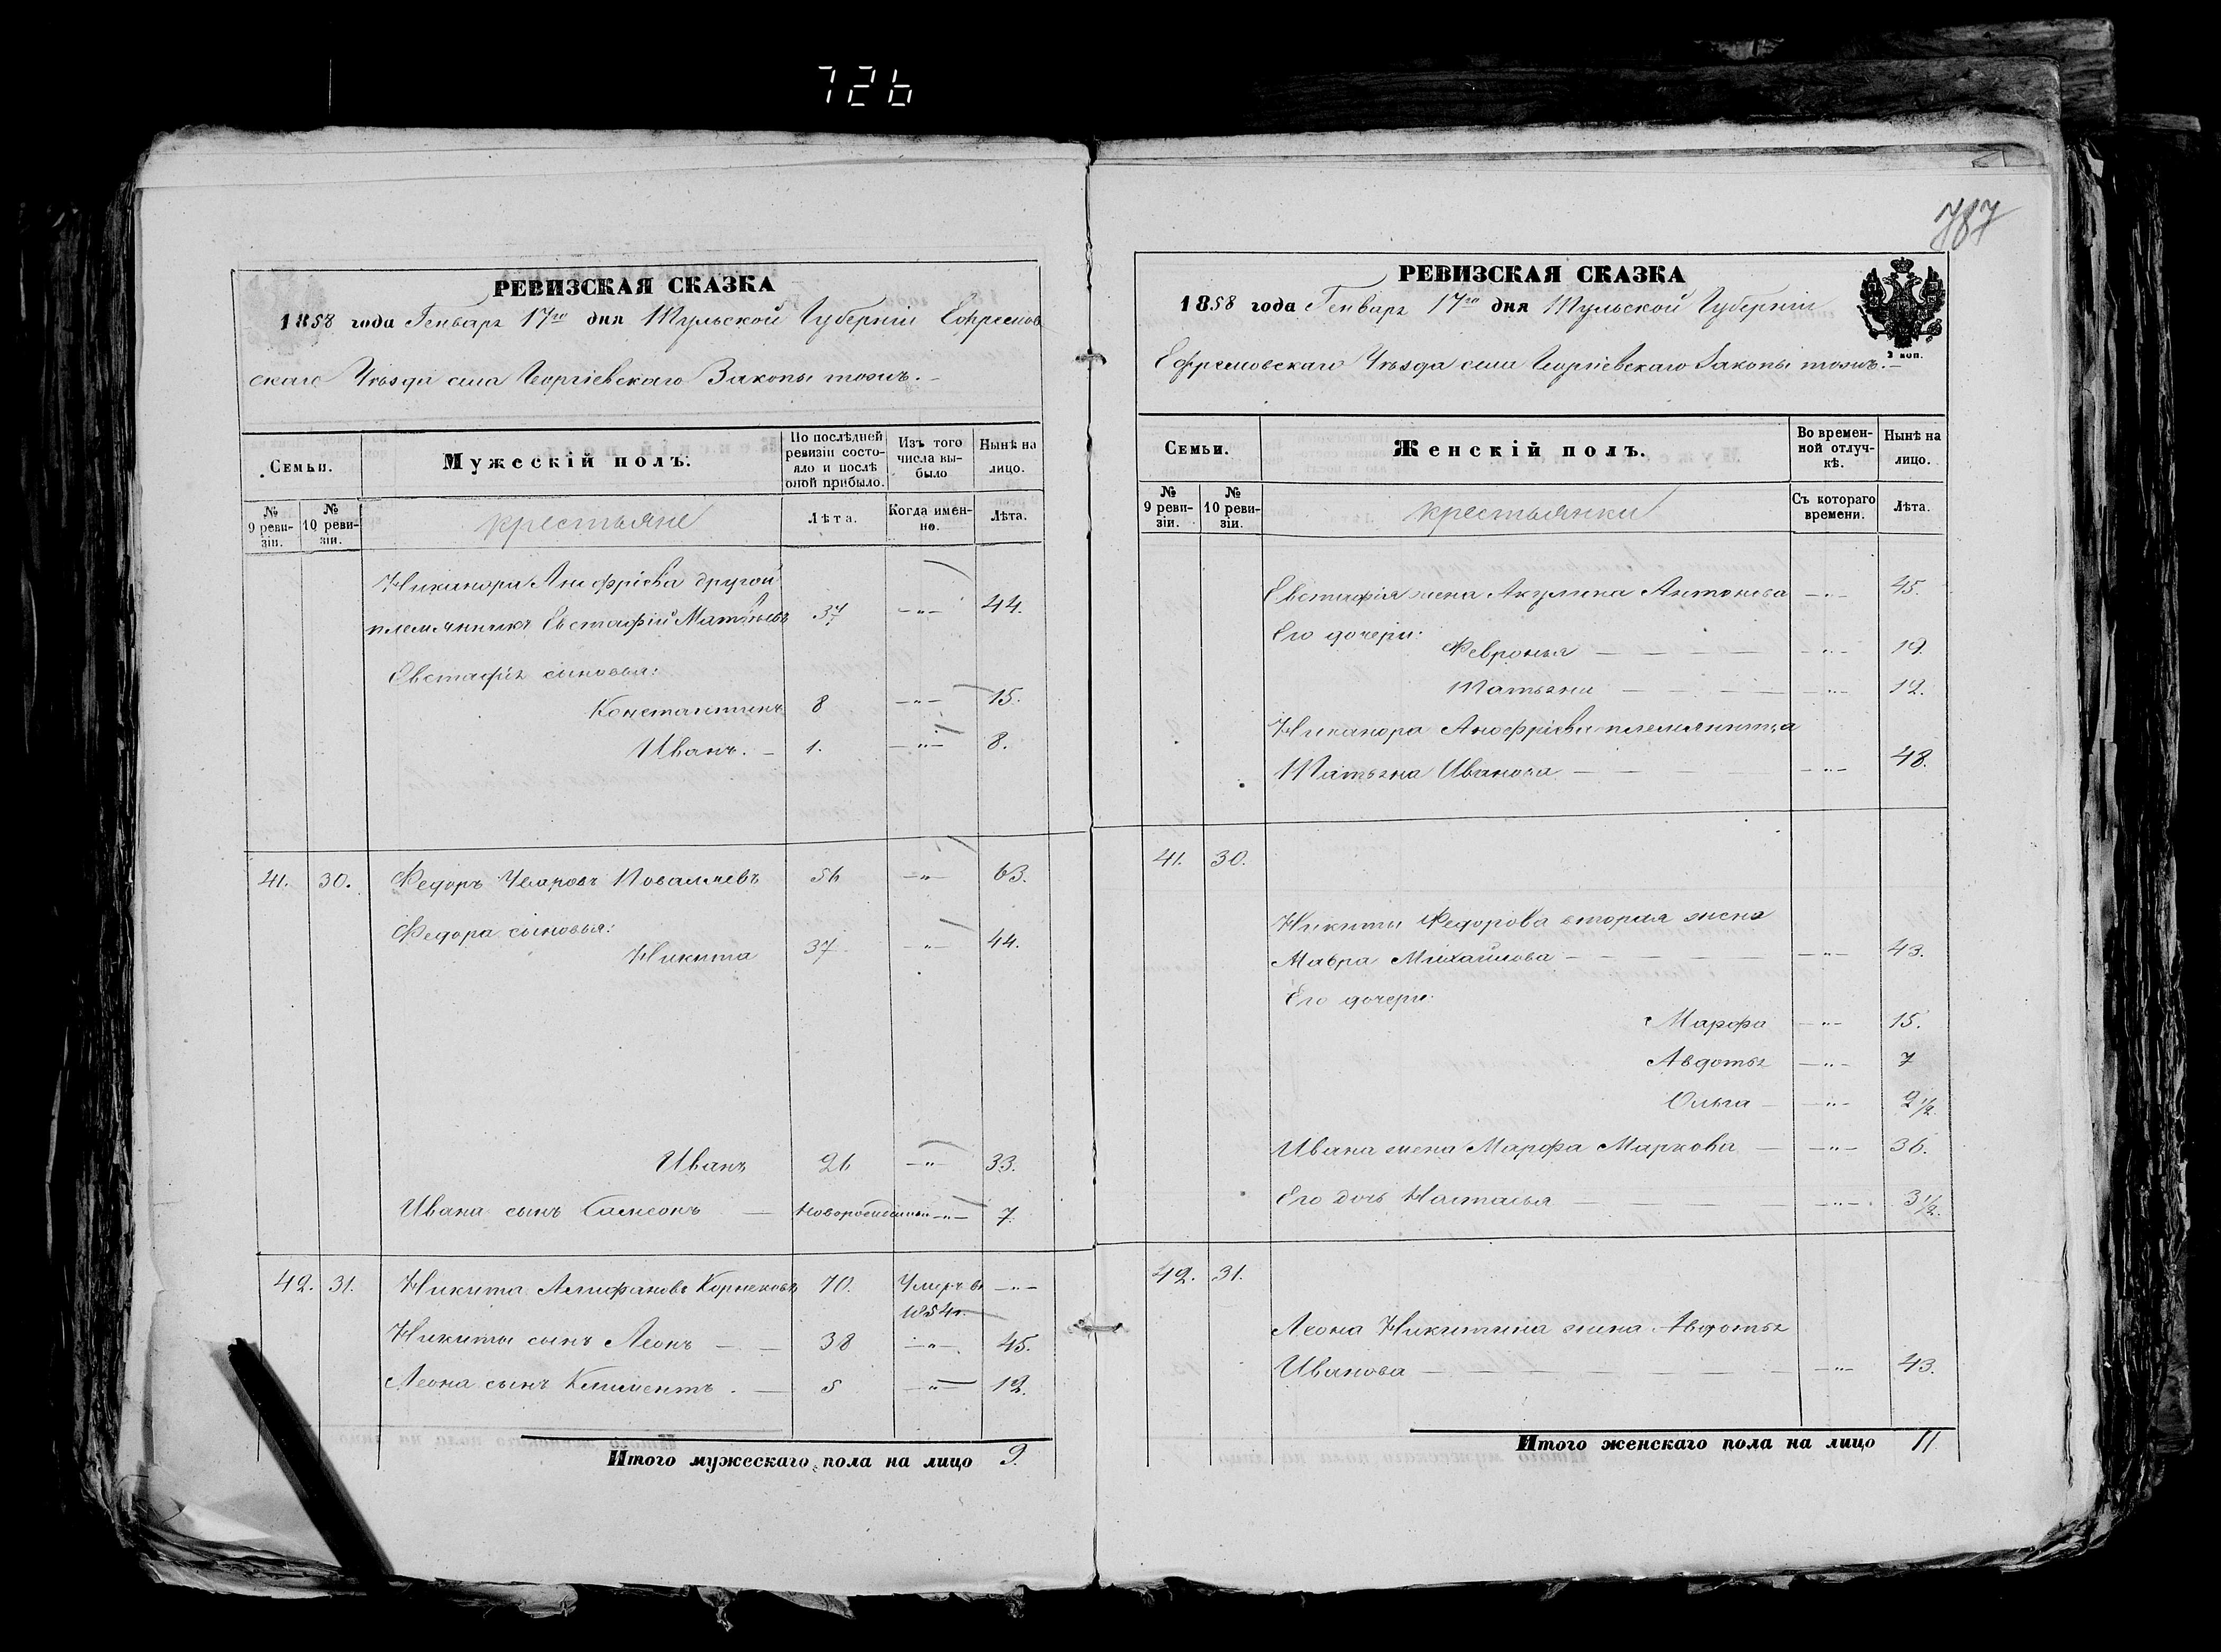 726
787
РЕВИЗСКАЯ СКАЗКА
1858 года Генваря 17го дня Тульской Губерніи Ефремов
скаго Уѣзда села Георгіевскаго Закопы тожъ.
Семьи.
Мужескій полъ.
По послѣдней ревизіи состояло и послѣ оной прибыло.
Изъ того числа выбыло
Нынѣ на лицо.
№ 9 ревизіи.
№ 10 ревизіи.
крестьяне
Лѣта.
Когда именно.
Лѣта.
Никанора Анофріева другой
племянникъ Евстафій Матвѣевъ 37 —"— 44.
Евстафія сыновья:
Константинъ 8 —"— 15.
Иванъ. — 1. —"— 8.
41. 30. Федоръ 56 —"— 63.
Федора сыновья:
Никита 37 —"— 44.
Иванъ 26 —"— 33.
Ивана сынъ Самсонъ — новорожденный —"— 7.
42. 31. Никита 70. Умеръ въ —"—
1854г.
Никиты сынъ Леонъ — — 38 —"— 45.
Леона сынъ Климентъ. — 5 —"— 12.
Итого мужескаго пола на лицо 9.
РЕВИЗСКАЯ СКАЗКА
1858 года Генваря 17го дня Тульской Губерніи
2 коп.
Ефремовскаго Уѣзда села Георгіевскаго Закопы тожъ.—
Семьи.
Женскій полъ.
Во временной отлучкѣ.
Нынѣ на лицо.
№ 9 ревизіи.
№ 10 ревизіи.
крестьянки
Съ котораго времени.
Лѣта.
Евстафія жена Акулина Антонова —"— 45.
Его дочери:
Февронья — — — — —"— 19.
Татьяна — — — — —"— 12.
Никанора Анофріева племянница
Татьяна Иванова — — — — —"— 48.
41. 30.
Никиты Федорова вторая жена
Мавра Михайлова — — — — —"— 43.
Его дочери:
Марфа —"— 15.
Авдотья —"— 7
Ольга — —"— 2½.
Ивана жена Марфа Маркова — —"— 36.
Его дочь Наталья — — — — —"— 3½.
42. 31.
Леона Никитина жена Авдотья
Иванова — — — — — — —"— 43.
Итого женскаго пола на лицо 11